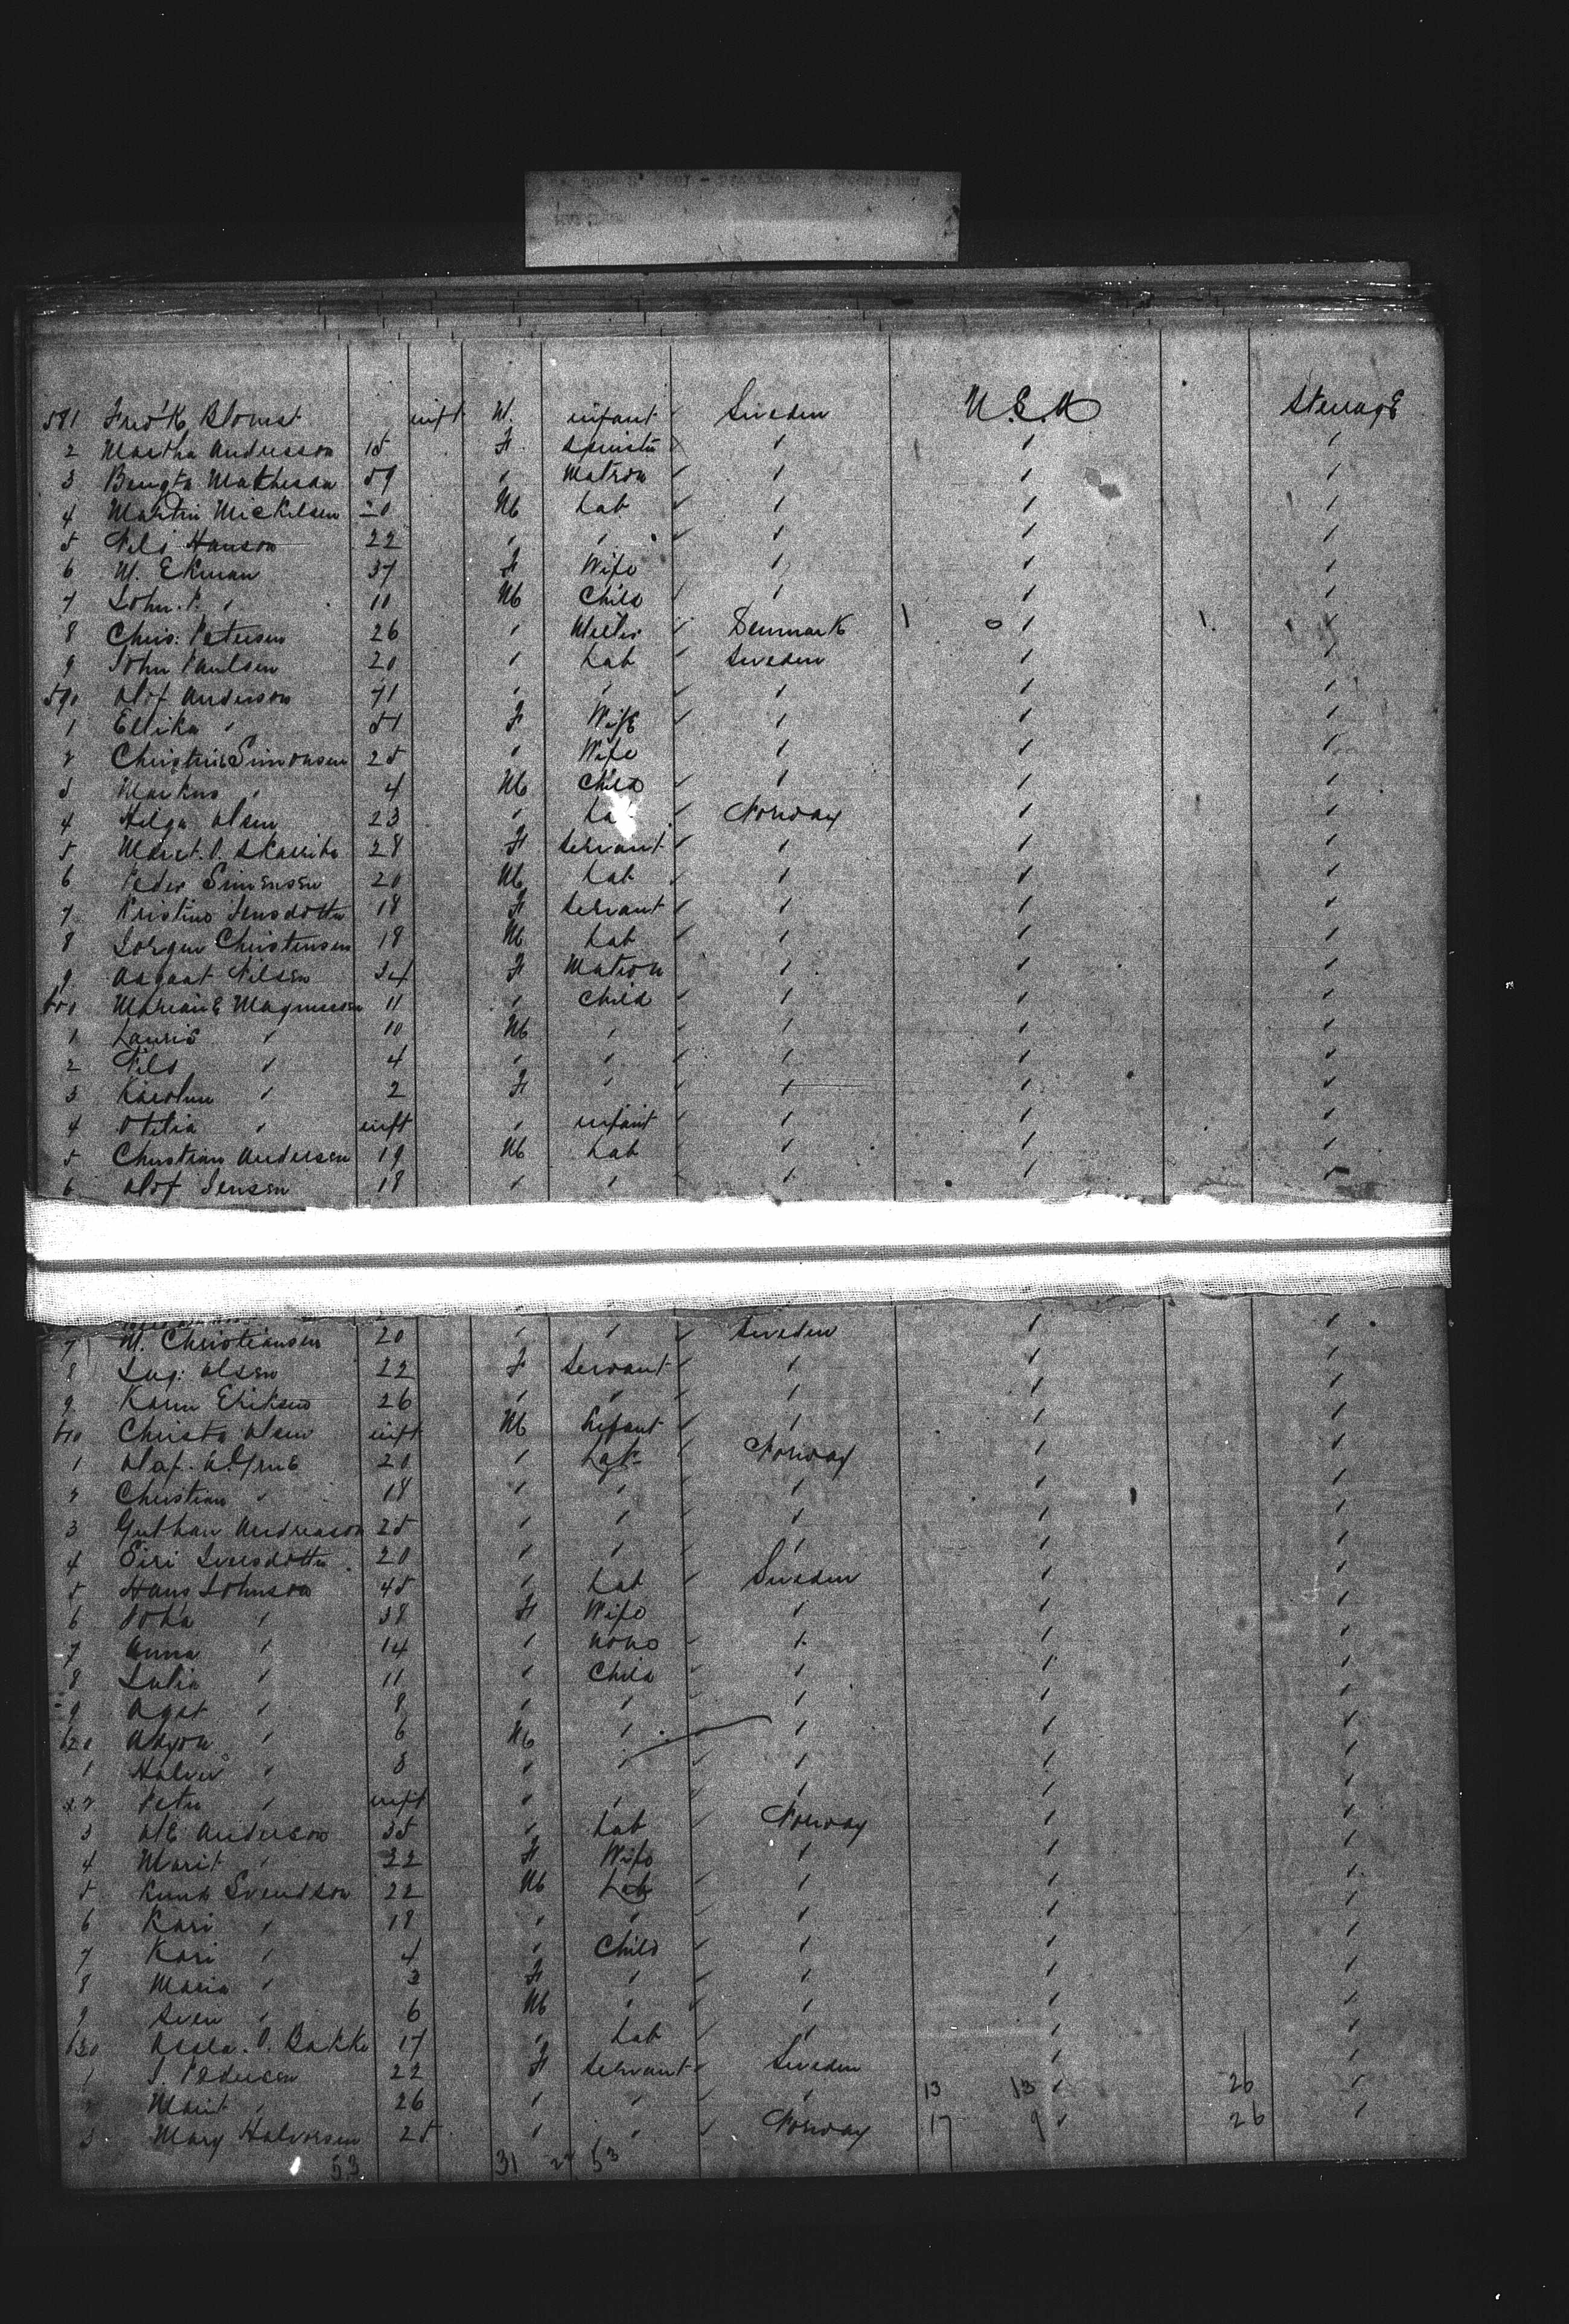 581 Fred'k Blomst inft M. infant Sweden U.S.A Steerage
2 Martha Andersson 15 F. Spinster
3 Bengta Matheson 59 Matron
4 Martin Mickelsen 20 M Lab
5 Nels Hanson 22
6 M. Ekman 37 F Wife
7 John. P. " 10 M Child
8 Chris: Petersen 26 Denmark
9 John Paulsen 20 Lab Sweden
590 Olof Anderson 71
1 Ellika " 51 F Wife
2 Christine Simonsen 25 Wife
3 Markus " 4 M Child
4 Helga Olsen 23 La Norway
5 Maret. O. 28 F Servant
6 Peder Simensen 20 M Lab
7 Kristine Jensdotter 18 F Servant
8 Jorgen Christensen 18 M Lab
9 Nilsen 34 F Matron
600 Mariane Magnusson 11 Child
1 Lauris " 10 M
2 Nils " 4
3 Karoline " 2 F
4 Otilia " inft infant
5 Christian Andersen 19 M Lab
6 Olof Jensen 18
7 M. Christiansen 20 Sweden
8 Ing: Olsen 22 F Servant
9 Karin Eriksen 26
610 Christa Olsen inft M Infant
1 Olaf. 20 Lab Norway
2 Christian " 18
3 Andreason 25
4 Siri Iversdotter 20
5 Hans Johnson 45 Lab Sweden
6 " 38 F Wife
7 Anna " 14 none
8 Julia " 11 Child
9 " 8
620 " 6 M
1 Halver " 3
22 Peter " inft
3 Ole Anderson 35 Lab Norway
4 Marit " 22 F Wife
5 Knud Svendson 22 M Lab
6 Kari " 18
7 Kari " 4 Child
8 Maria " 3 F
9 Sven " 6 M
630 O. Bakke 17 Lab
1 S. Pedersen 22 F Servant Sweden
2 Marit " 26 13 13 26
3 Mary Halvorsen 25 Norway 17 9 26
53 31 22 53